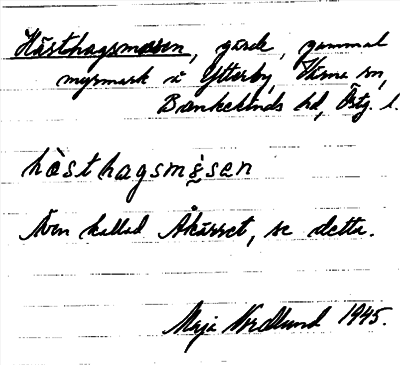 Hästhagsmosen, gärde, gammal
myrmark å Ytterby, Värna sn,
Bankekinds hd, Östg. l.
hàsthagsmɷ̀sen
Även kallad Åkärret, se detta.
Maja Nordlund 1945.